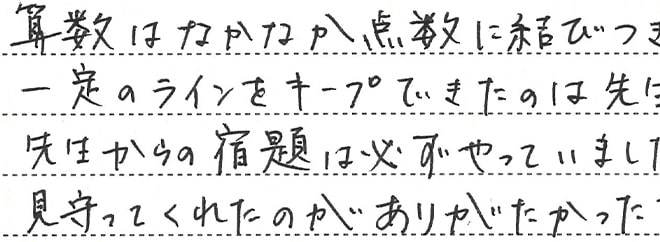 算数はなかなか点数に結びつき
一定のラインをキープできたのは先生
先生からの宿題は必ずやっていました
見守ってくれたのがありがたかった